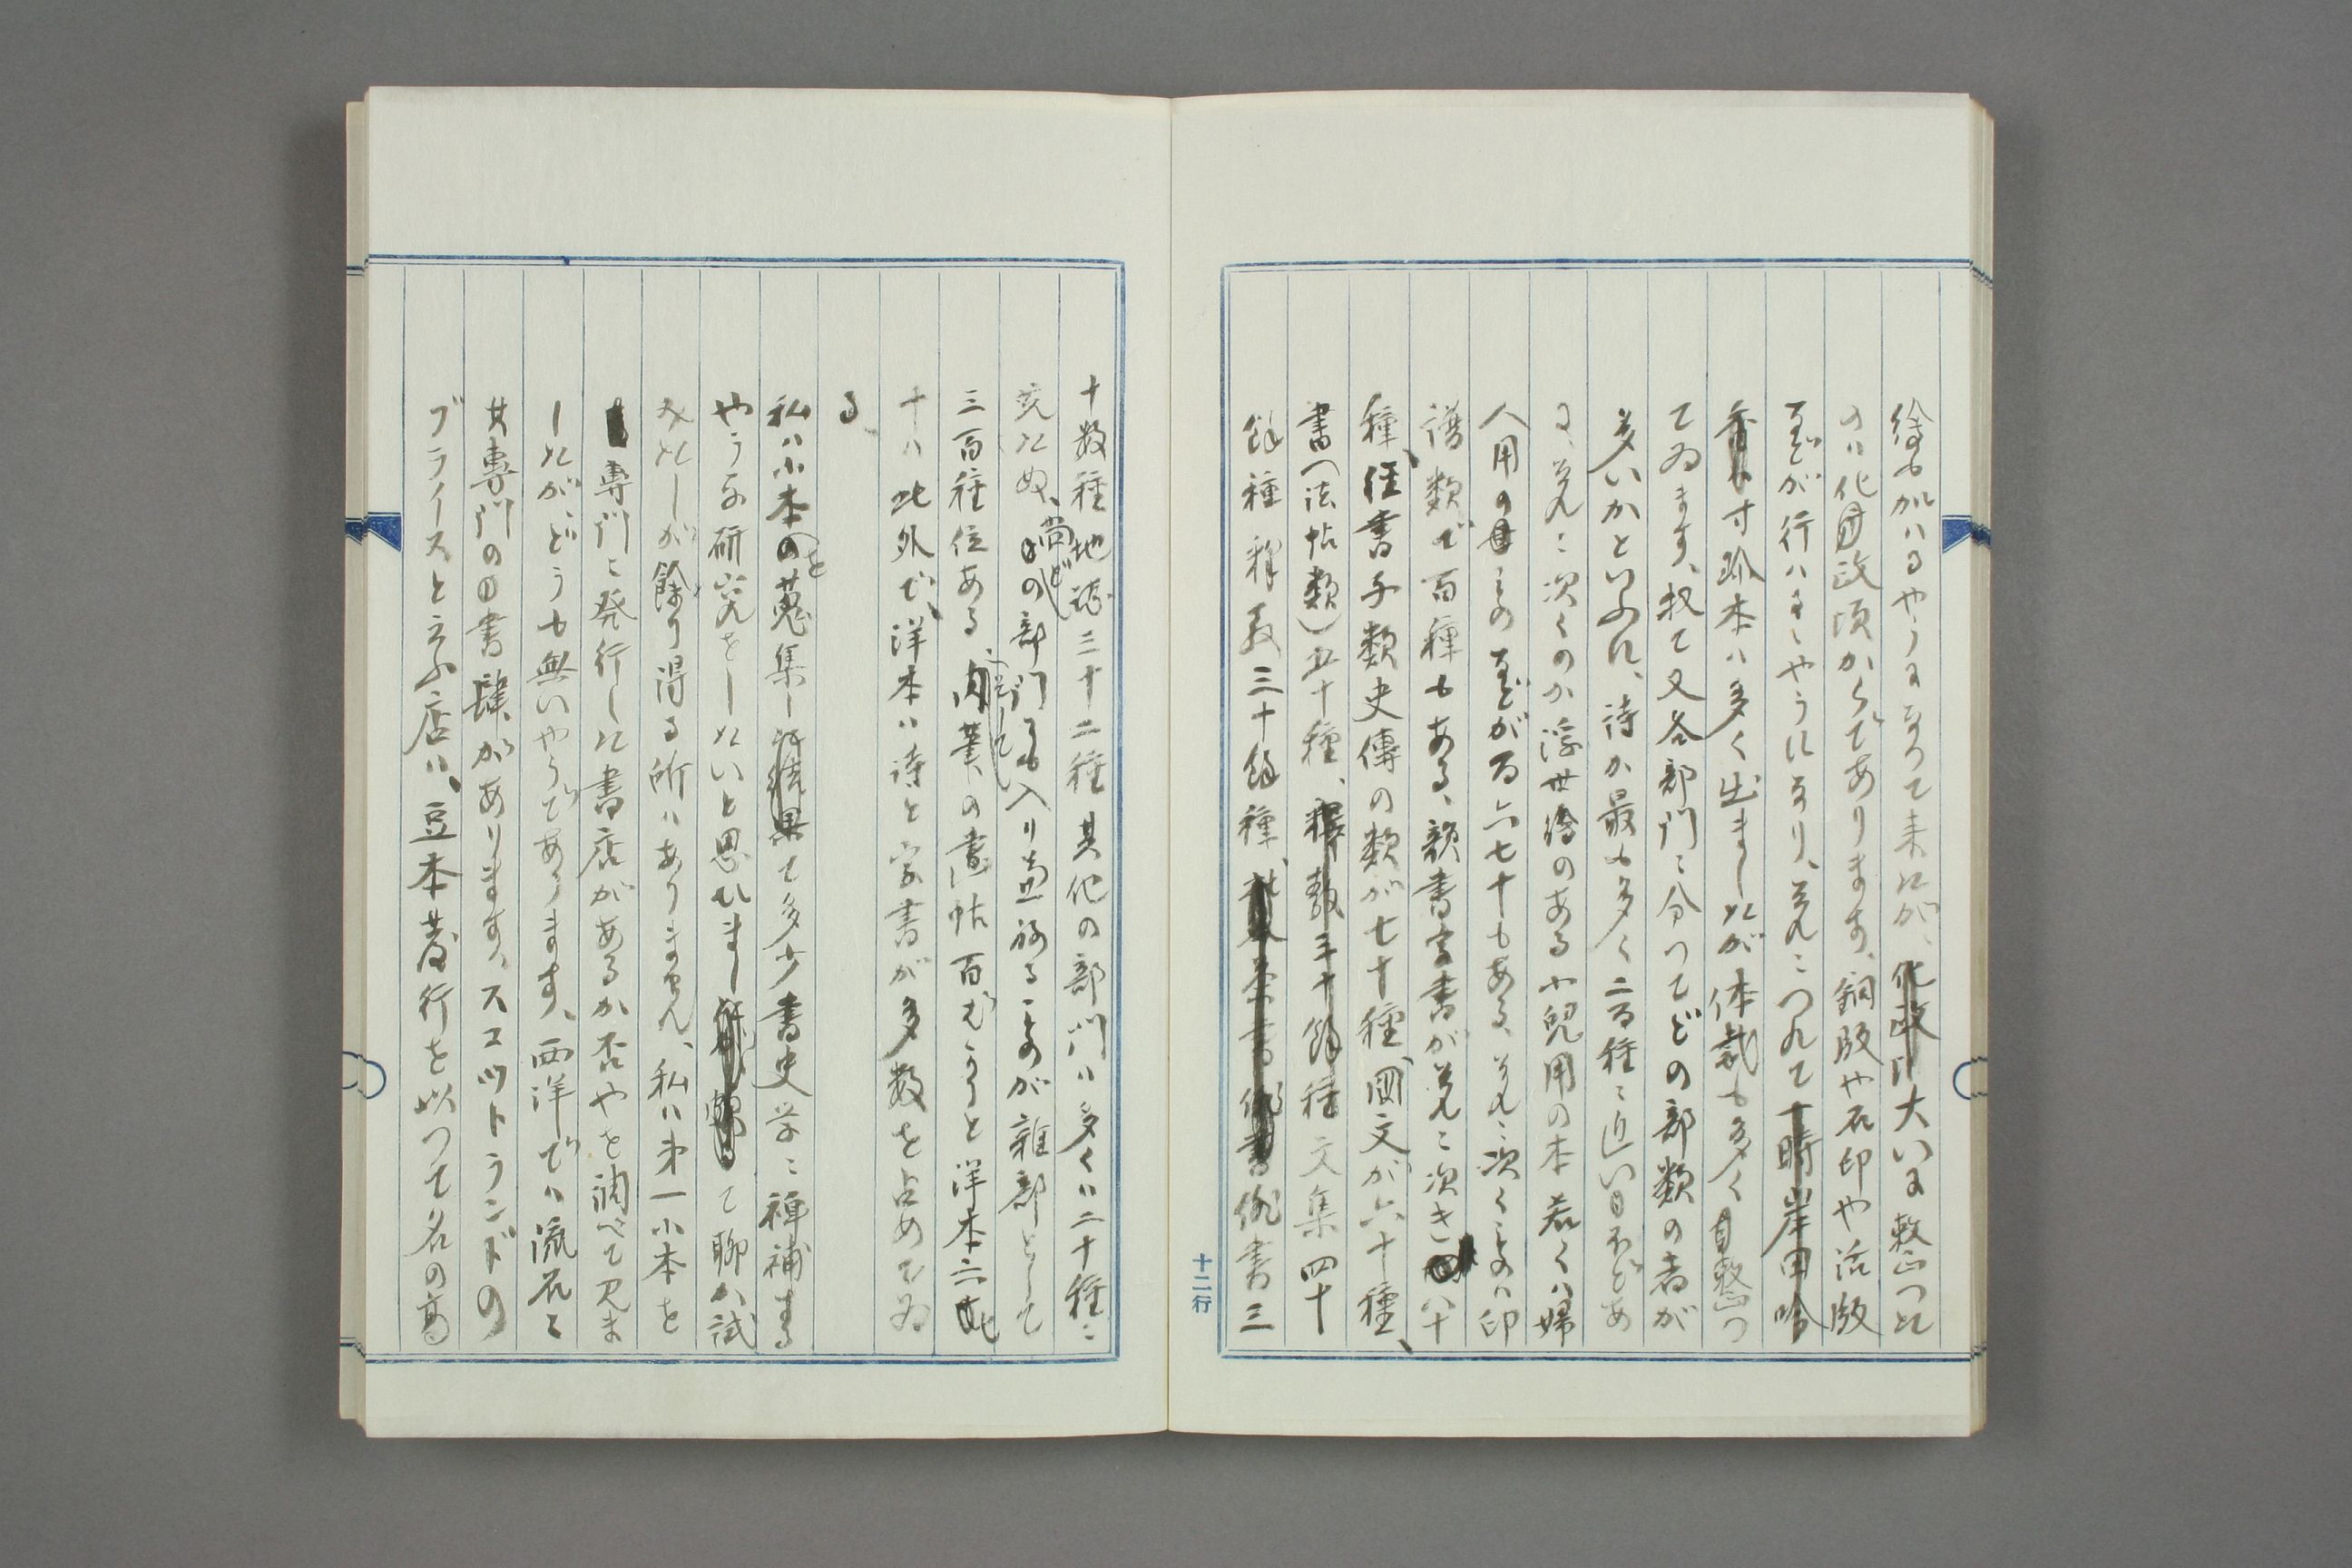 絵も加ハるやうになつて来たが、化政ハ大いに整つた
のハ化政頃からであります、銅版や石印や活版
などが行ハるゝやうになり、其れにつれて十時岸田吟
香寸珍本ハ多く出ましたが体裁も多く整つ
てゐます、扨て又各部門に分つてどの部類の者が
多いかといふに、詩が最も多く二百種に近いほどあ
る、其れに次くのか浮世絵のある小児用の本若くハ婦
人用のものなどが百六七十もある、其れに次くものハ印
譜類で百種もある、韻書字書が其れに次き八十
種、経書子類史傳の類が七十種、國文が六十種、
書(法帖類)五十種、釋教三十餘種文集四十
餘種釋教三十餘種、俳書三
十二行
十数種地誌三十二種其他の部門ハ多くハ二十種に
充たぬ、尚どの部門にも入り兼ねるものが雑部として
三百種位ある、肉筆の書帖百
十ハ此外で、洋本ハ詩と字書が多数を占めてゐ
る、
私ハ小本を蒐集して多少書史学に裨補する
やうな研究をしたいと思ひまして聊か試
みたしが餘り得る所ハありません、私ハ第一小本を
専門に発行した書店があるか否やを調べて見ま
したが、どうも無いやうであります、西洋でハ流石に
其専門の書肆があります、スコツトランドの
ブライスと云ふ店ハ、豆本発行を以つて名の高